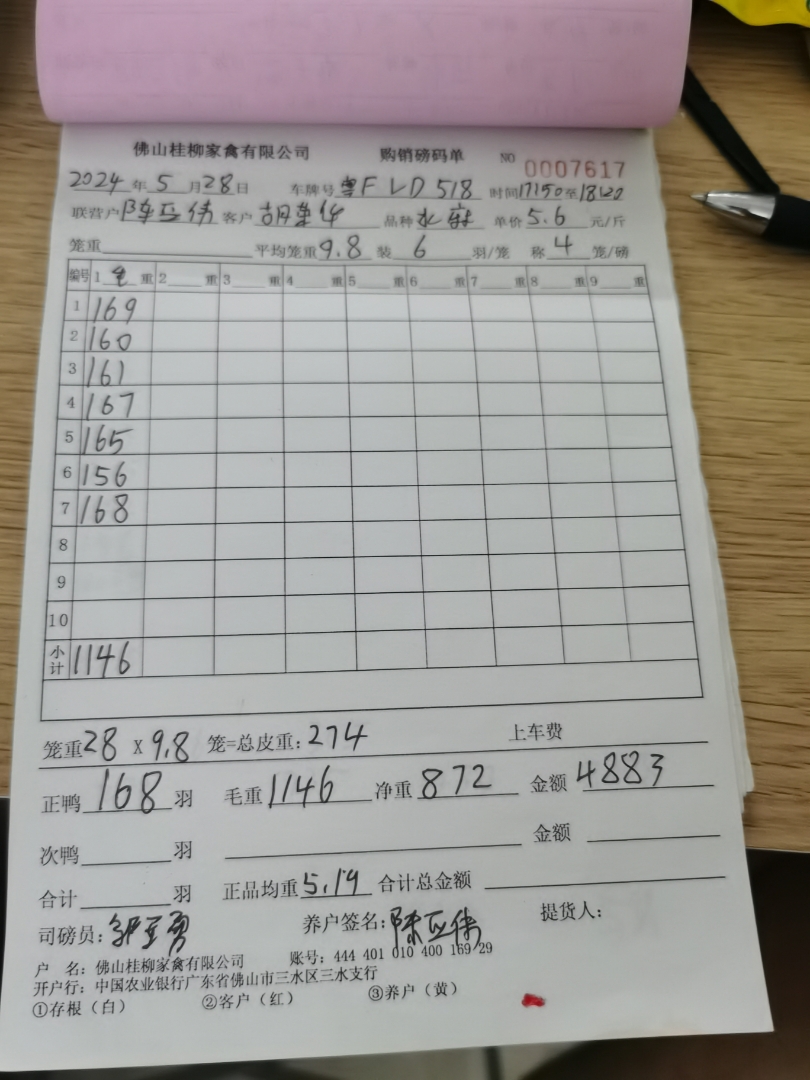 佛山桂柳家禽有限公司 购销磅码单 NO 0007617
2024年5月28日 车牌号粤FLD518 时间17:50至18:20
联营户陈亚伟 客户胡 品种水麻 单价5.6元/斤
笼重 平均笼重9.8 装6羽/笼 称4笼/磅
编号 1毛重 2重 3重 4重 5重 6重 7重 8重 9重
1 169
2 160
3 161
4 167
5 165
6 156
7 168
8
9
10
小计 1146
笼重28×9.8 笼=总皮重:274 上车费
正鸭168羽 毛重1146 净重872 金额4883
次鸭 羽 金额
合计 羽 正品均重5.19 合计总金额
司磅员: 养户签名:陈亚伟 提货人:
户 名:佛山桂柳家禽有限公司 账号:444 401 010 400 169 29
开户行:中国农业银行广东省佛山市三水区三水支行
①存根(白) ②客户(红) ③养户(黄)